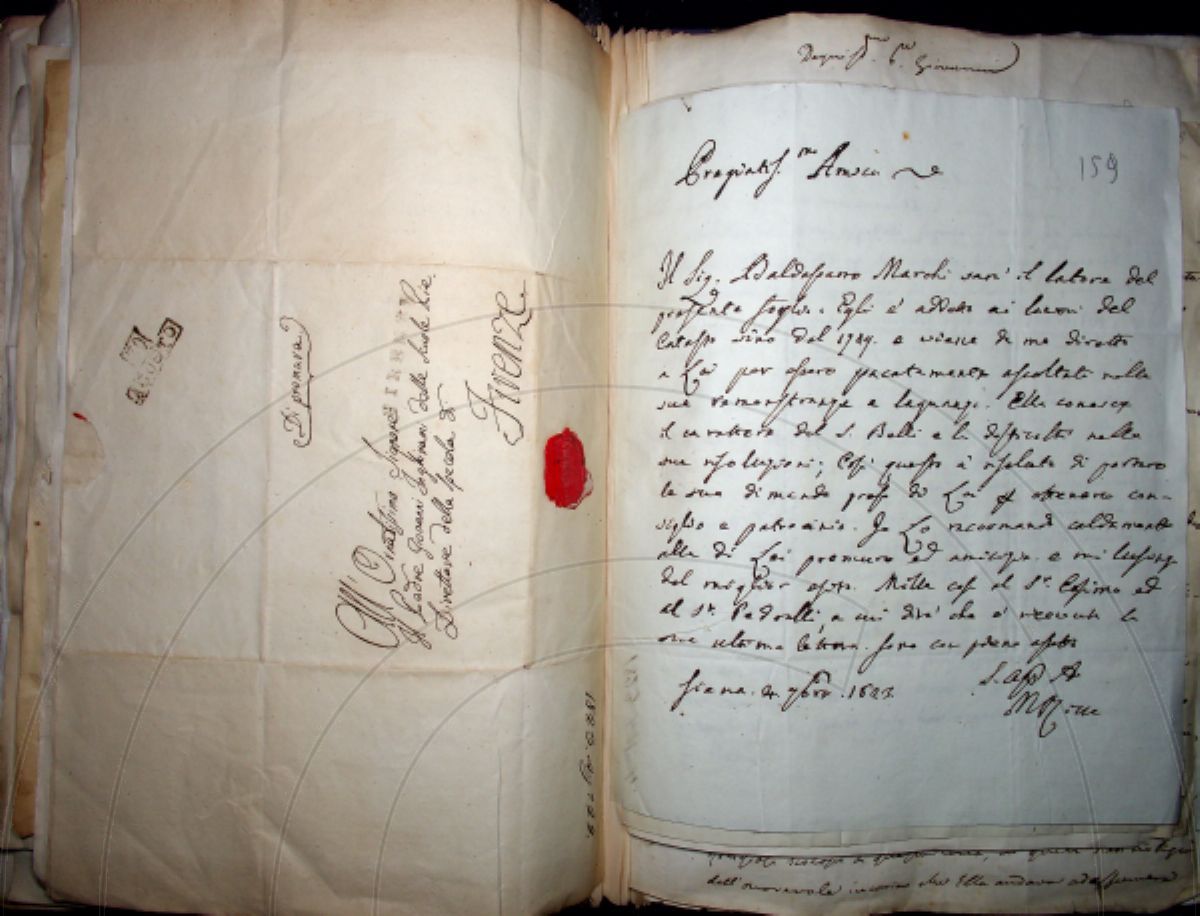 Di premura
All' Ornatissimo Signore
Il Padre Giovanni Inghirami delle Scuole Pie
Direttore della Specola di
Firenze
Pregiatis.mo Amico
159
Il Sig. Baldassarre Marchi sarà il latore del
presente foglio. Egli è addetto ai lavori del
Catasto sino dal 1789. e viene da me diretto
a Lei per essere pacatamente ascoltato nelle
sue rimostranze e lagnanze. Ella conosce
il carattere del S. Belli e le difficoltà nelle
sue risoluzioni; Così questo è risoluto di portare
la sua dimanda presso di Lei per ottenere con-
siglio e patrocinio. Io Lo raccomando caldamente
alla di Lei premura ed amicizia e mi lusingo
del miglior esito. Mille cose al S.r Cosimo ed
al S.r Pedralli, a cui dirà che è ricevuta la
sua ultima lettera. Sono con pieno affetto
Siena 4 9bre 1823.
dell'onorevole incarico che Ella andava ad assumere